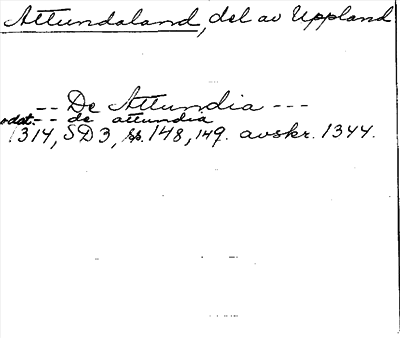 Attundaland, del av Uppland
-- De Attundia ---
odat. -- de attundia
1314, SD3, ss. 148, 149. avskr. 1344.